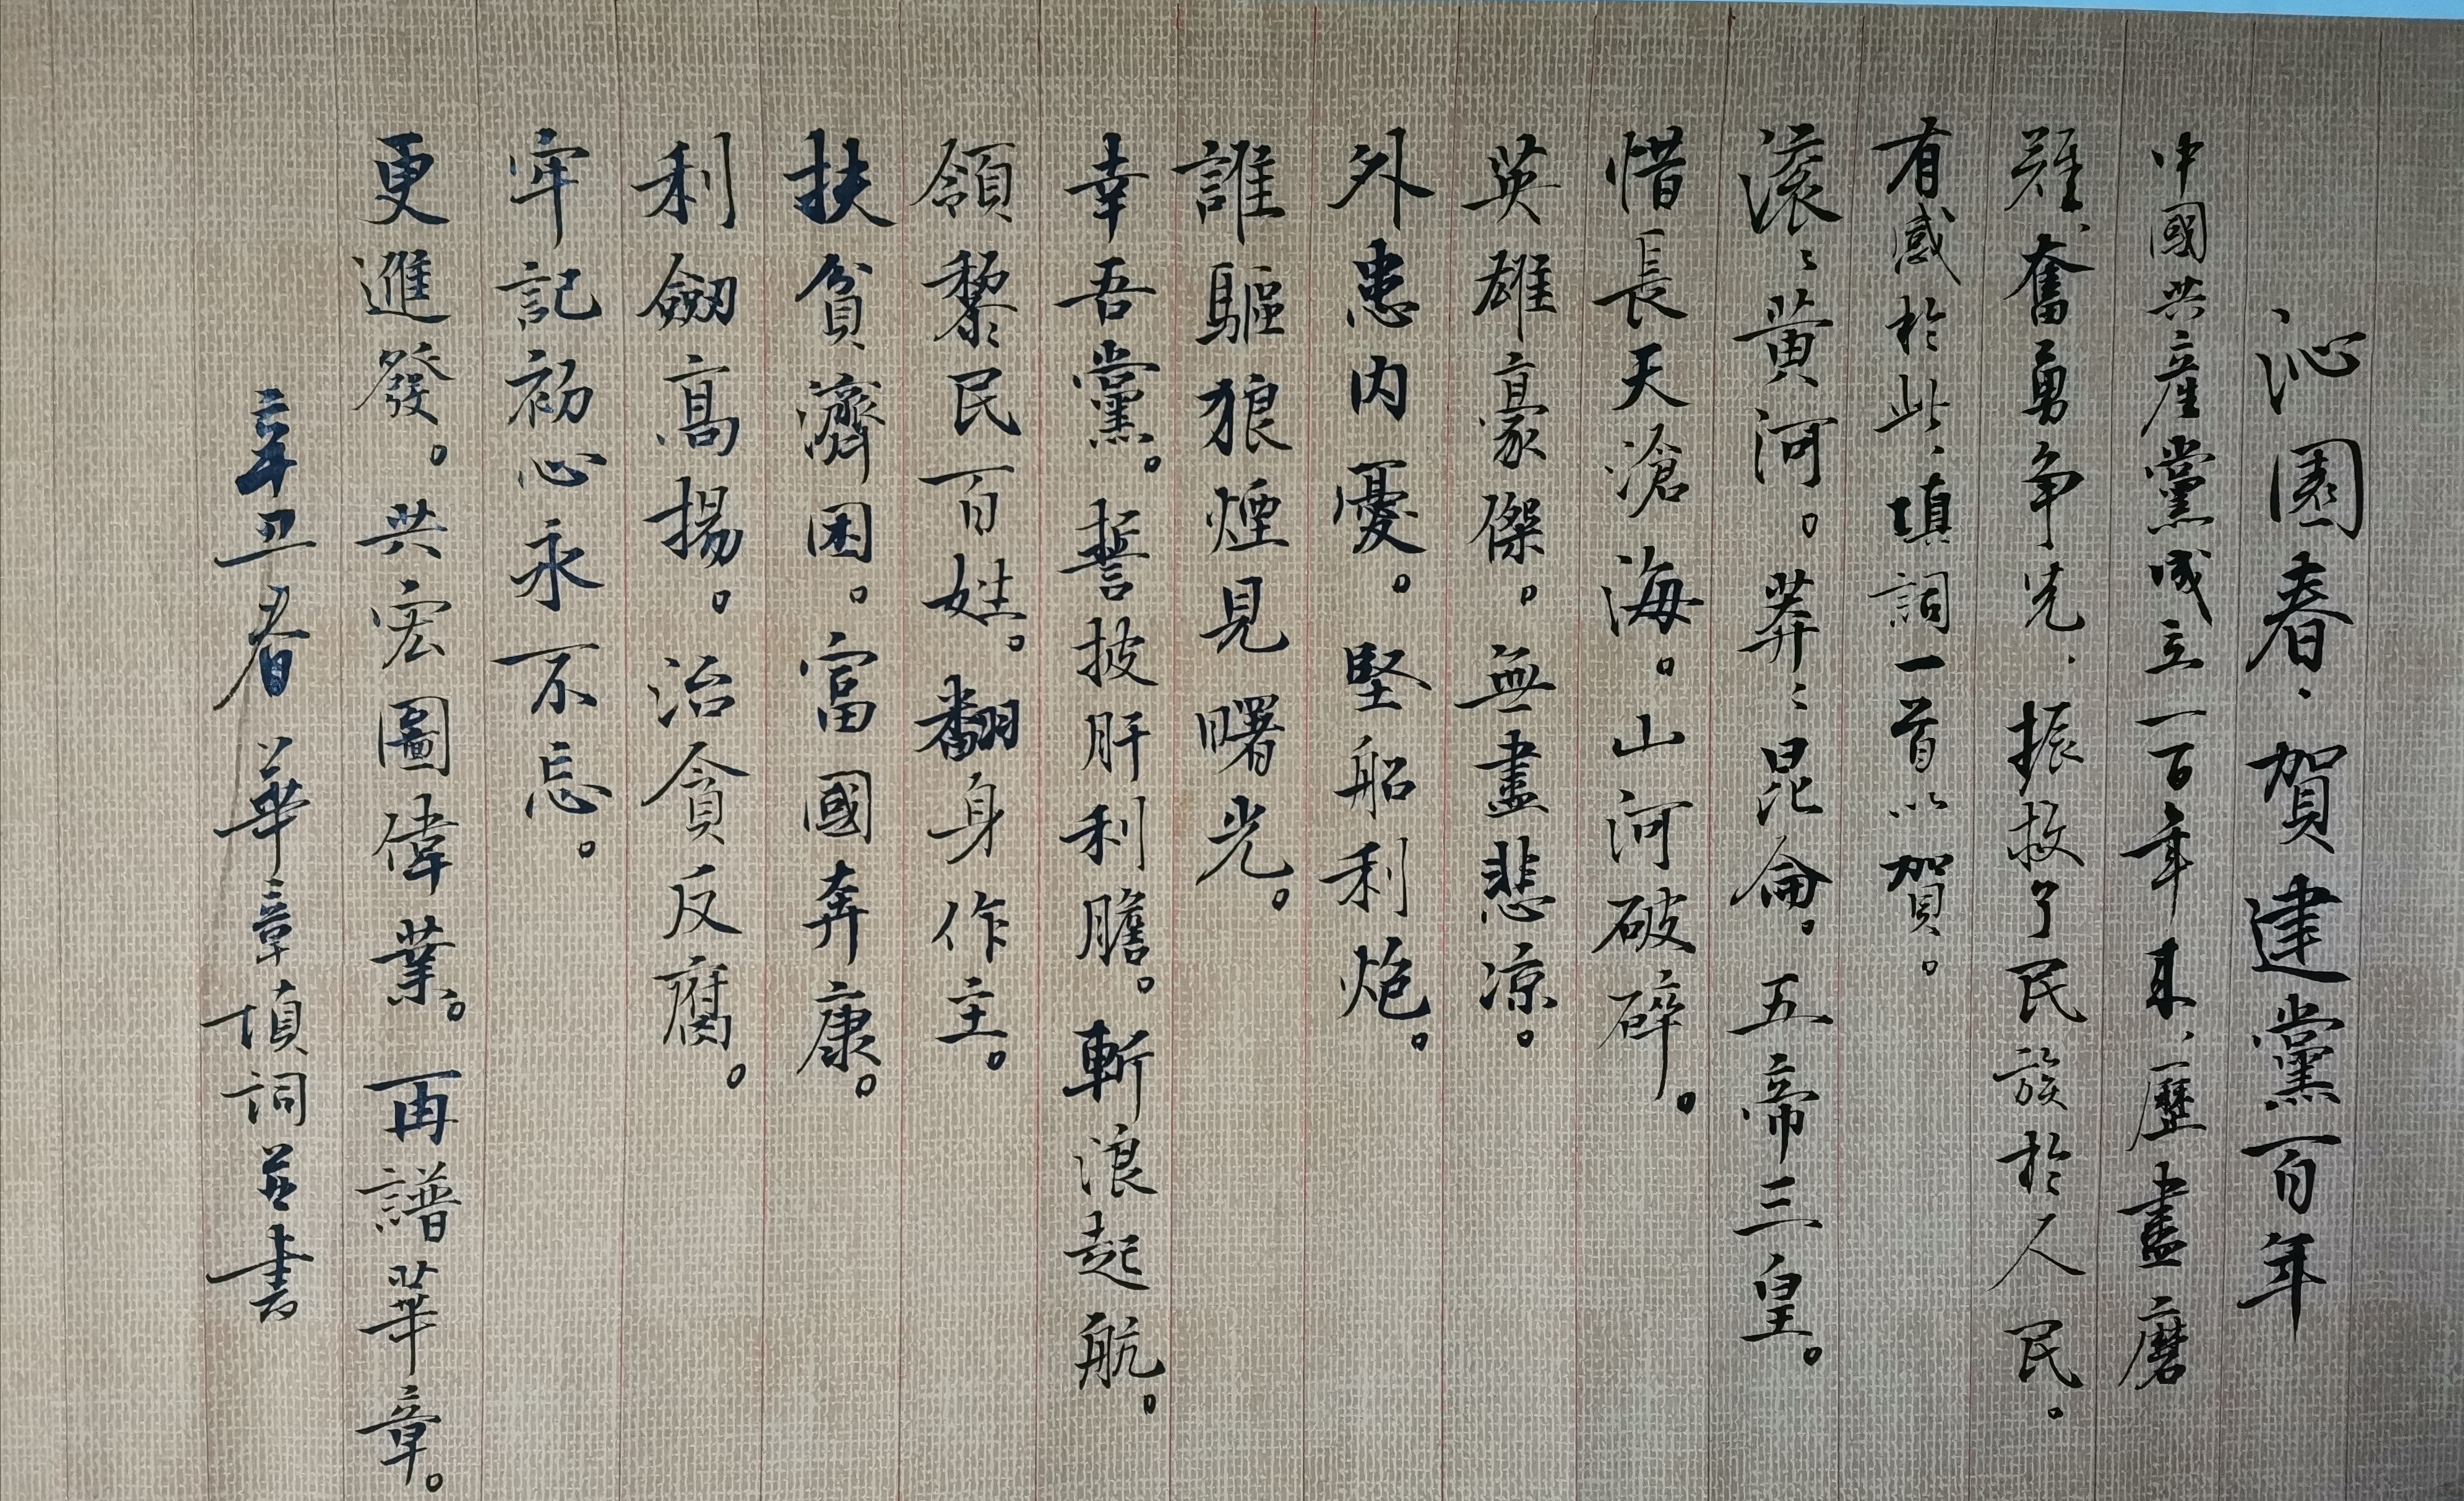 沁園春·賀建黨百年
中國共産黨成立一百年来、歷盡磨
難、奮勇争先、振救了民族於人民。
有感於此、填詞一首以賀。
滚〻黄河。莽〻昆侖。五帝三皇。
惜長天滄海。山河破碎。
英雄豪傑。無盡悲凉。
外患内憂。堅船利炮。
誰驅狼煙見曙光。
幸吾黨。誓披肝利膽。斬浪起航。
領黎民百姓。翻身作主。
扶貧濟困。富國奔康。
利劒高揚。治貪反腐。
牢記初心永不忘。
更進發。共宏圖偉業。再譜華章。
辛丑春 華章填詞并書